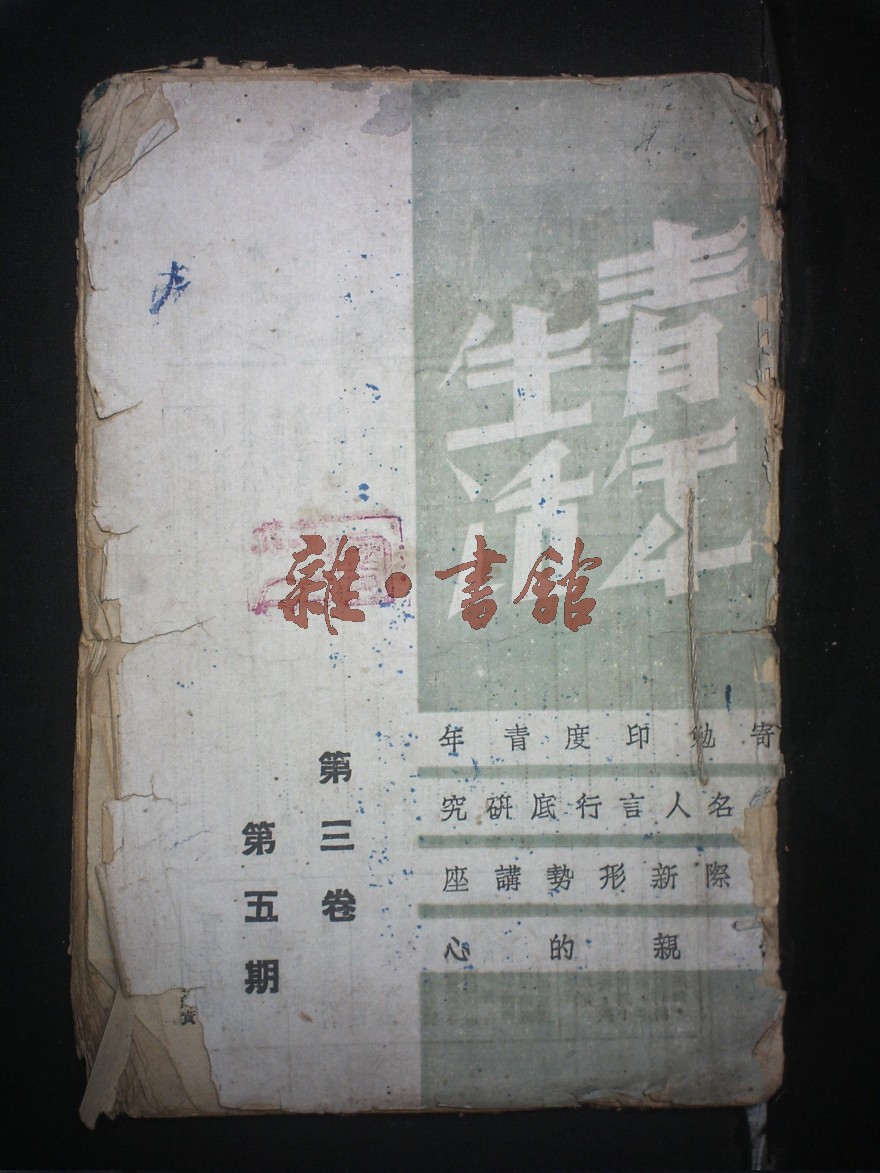 青年
生活
寄勉印度青年
名人言行底研究
際新形勢講座
親的心
第三卷
第五期
雜·書館